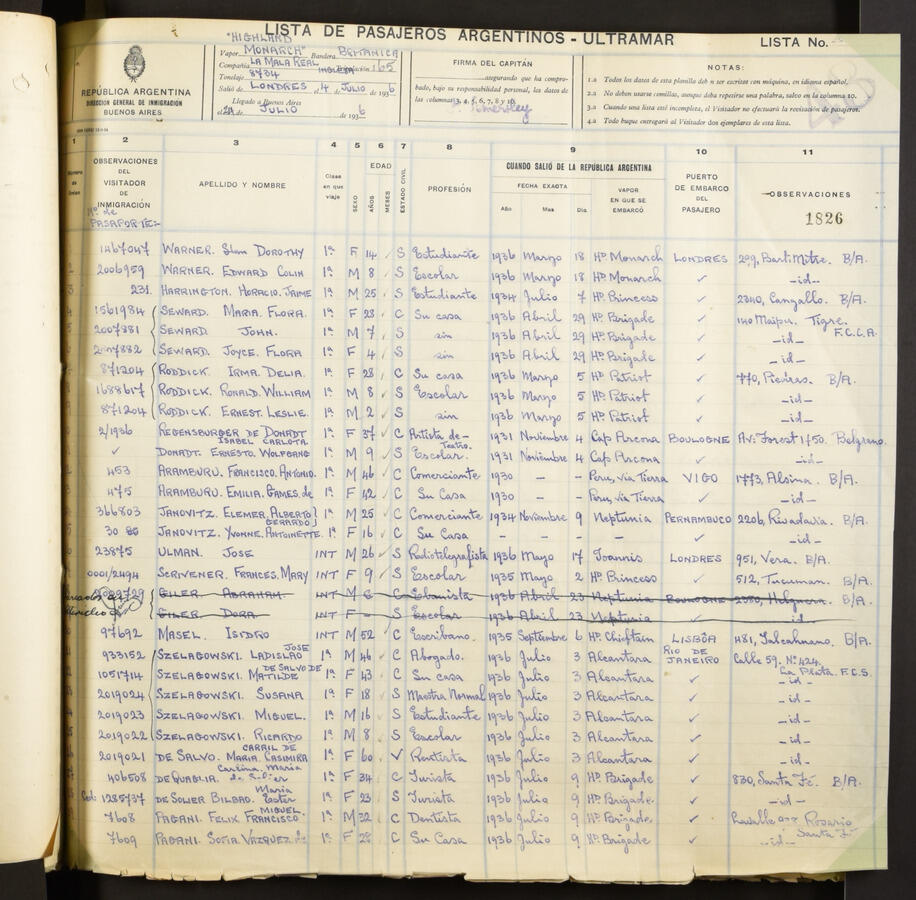 LISTA DE PASAJEROS ARGENTINOS - ULTRAMAR LISTA No.
REPÚBLICA ARGENTINA
DIRECCION GENERAL DE INMIGRACIÓN
BUENOS AIRES
"HIGHLAND
Vapor MONARCH" Bandera BRITANICA
Compañía LA MALA REAL INGLESA 165
Tonelaje 8734
Salió de LONDRES el 4 de JULIO de 1936
Llegado a Buenos Aires
el de JULIO de 1936
FIRMA DEL CAPITÁN
asegurando que ha compro-
bado, bajo su responsabilidad personal, los datos de
las columnas 3, 4, 5, 6, 7, 8 y 10.
NOTAS:
1.a Todos los datos de esta planilla deb n ser escritos con máquina, en idioma español.
2.a No deben usarse comillas, aunque deba repetirse una palabra, salvo en la columna 10.
3.a Cuando una lista esté incompleta, el Visitador no efectuará la revisación de pasajeros.
4.a Todo buque entregará al Visitador dos ejemplares de esta lista.
1 2 3 4 5 6 7 8 9 10 11
OBSERVACIONES DEL VISITADOR DE INMIGRACIÓN
No. de PASAPORTE:-
APELLIDO Y NOMBRE
Clase en que viaje
SEXO
EDAD
AÑOS
MESES
ESTADO CIVIL
PROFESIÓN
CUANDO SALIÓ DE LA REPÚBLICA ARGENTINA
FECHA EXACTA
Año Mes Día
VAPOR EN QUE SE EMBARCÓ
PUERTO DE EMBARCO DEL PASAJERO
OBSERVACIONES
1826
1467047 WARNER. DOROTHY 1a F 14 ✓ S Estudiante 1936 Marzo 18 Hd Monarch LONDRES 299, Bart. Mitre. B/A.
2006959 WARNER. EDWARD COLIN 1a M 8 ✓ S Escolar 1936 Marzo 18 Hd Monarch ✓ -id-
231. HARRINGTON. HORACIO. JAIME 1a M 25 ✓ S Estudiante 1934 Julio 7 Hd Princess ✓ 2340, Cangallo. B/A.
1561984 SEWARD. MARIA. FLORA. 1a F 28 ✓ C Su casa 1936 Abril 29 Hd Brigade ✓ 140 Maipu. Tigre. F.C.C.A.
2007881 SEWARD JOHN. 1a M 7 ✓ S sin 1936 Abril 29 Hd Brigade ✓ -id-
SEWARD. JOYCE. FLORA 1a F 4 ✓ S sin 1936 Abril 29 Hd Brigade ✓ -id-
871204 RODDICK. IRMA. DELIA. 1a F 28 ✓ C Su casa 1936 Marzo 5 Hd Patriot ✓ 770, Piedras. B/A.
1688617 RODDICK. RONALD. WILLIAM 1a M 8 ✓ S Escolar 1936 Marzo 5 Hd Patriot ✓ -id-
871204 RODDICK. ERNEST. LESLIE. 1a M 2 ✓ S sin 1936 Marzo 5 Hd Patriot ✓ -id-
2/1936 REGENSBURGER DE DONADT ISABEL CARLOTA 1a F 37 ✓ C Artista de Teatro. 1931 Noviembre 4 Cap Arcona BOULOGNE Av. Forest 1750. Belgrano.
✓ DONADT. ERNESTO. WOLFGANG 1a M 9 ✓ S Escolar. 1931 Noviembre 4 Cap Arcona ✓ -id-
453 ARAMBURU. FRANCISCO. ANTONIO. 1a M 46 ✓ C Comerciante 1930 - - Peru, via Tierra VIGO 1773, Alsina. B/A.
475 ARAMBURU. EMILIA. GAMES. de 1a F 42 ✓ C Su Casa 1930 - - Peru, via Tierra ✓ -id-
366803 JANOVITZ. ELEMER. ALBERTO GERARDO 1a M 25 ✓ C Comerciante 1934 Noviembre 9 Neptunia PERNAMBUCO 2206, Rivadavia. B/A.
30 JANOVITZ. YVONNE. ANTOINETTE. 1a F 16 ✓ C Su Casa - - - - ✓ -id-
23875 ULMAN. JOSE INT M 26 ✓ S Radiotelegrafista 1936 Mayo 17 Ioannis LONDRES 951, Vera. B/A.
0001/2494 SCRIVENER. FRANCES. MARY INT F 9 ✓ S Escolar 1935 Mayo 2 Hd Princess ✓ 512, Tucuman. B/A.
GILER ABRAHAM INT M C Ebanista 1936 Abril 23 Neptunia BOULOGNE B/A.
GILER DORA INT F - S Escolar 1936 Abril 23 Neptunia id
97692 MASEL. ISIDRO INT M 52 ✓ C Escribano. 1935 Septiembre 6 Hd Chieftain LISBÔA 481, Talcahuano. B/A.
933152 SZELAGOWSKI. LADISLAO JOSE 1a M 46 ✓ C Abogado. 1936 Julio 3 Alcantara RIO DE JANEIRO Calle 59. No. 424. La Plata. F.C.S.
1051714 SZELAGOWSKI. MATILDE DE SALVO DE 1a F 43 ✓ C Su casa 1936 Julio 3 Alcantara ✓ -id-
2019024 SZELAGOWSKI. SUSANA 1a F 18 ✓ S Maestra Normal 1936 Julio 3 Alcantara ✓ -id-
2019023 SZELAGOWSKI. MIGUEL. 1a M 16 ✓ S Estudiante 1936 Julio 3 Alcantara ✓ -id-
2019022 SZELAGOWSKI. RICARDO 1a M 8 ✓ S Escolar 1936 Julio 3 Alcantara ✓ -id-
2019021 DE SALVO. MARIA. CASIMIRA CARRIL DE 1a F 60 ✓ V Rentista 1936 Julio 3 Alcantara ✓ -id-
406508 DE QUAGLIA. Carlina. Maria 1a F 34 ✓ C Turista 1936 Julio 9 Hd Brigade ✓ 830, Santa Fé. B/A.
1285737 DE SOLIER BILBAO. Maria Ester 1a F 23 ✓ S Turista 1936 Julio 9 Hd Brigade. ✓ -id-
7608 PAGANI. FELIX FRANCISCO MIGUEL 1a M 32 ✓ C Dentista 1936 Julio 9 Hd Brigade. ✓ Rosario Santa Fé
7609 PAGANI. SOFIA VAZQUEZ de 1a F 28 ✓ C Su Casa 1936 Julio 9 Hd Brigade ✓ -id-